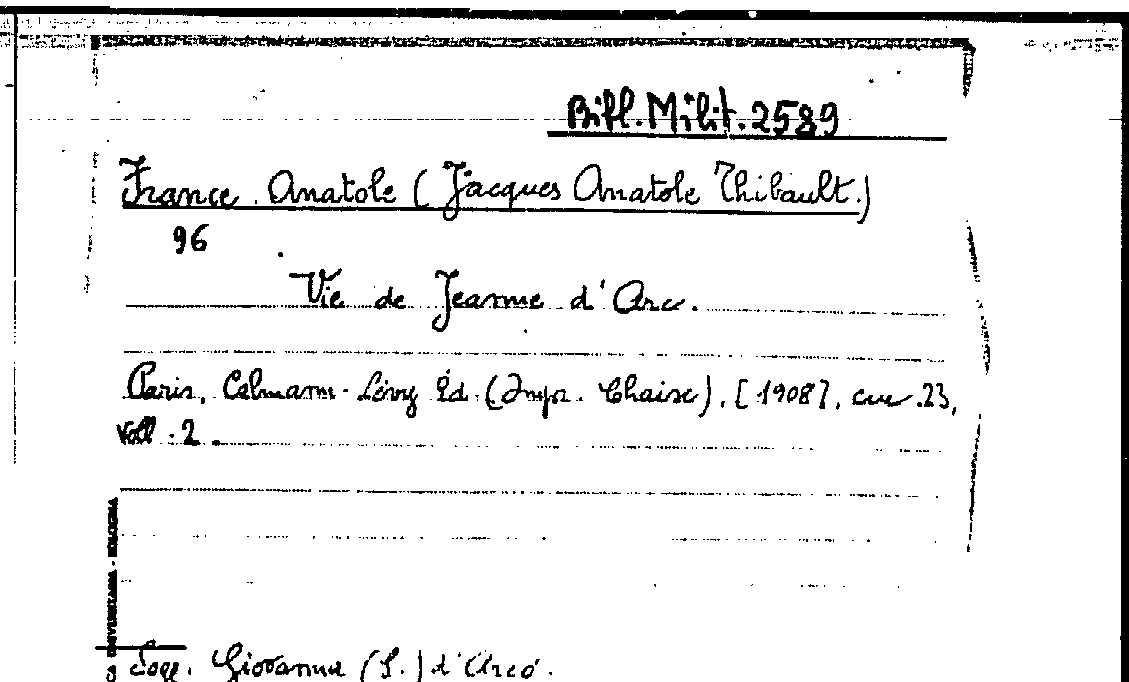 Bibl. Milit. 2589
France Anatole (Jacques Anatole Thibault.)
96
Vie de Jeanne d'Arc.
Paris, Calmann-Lévy Éd. (Impr. Chaix), [1908], cm. 23,
voll. 2.
UNIVERSITARIA - BOLOGNA
Sogg. Giovanna (S.) d'Arco.